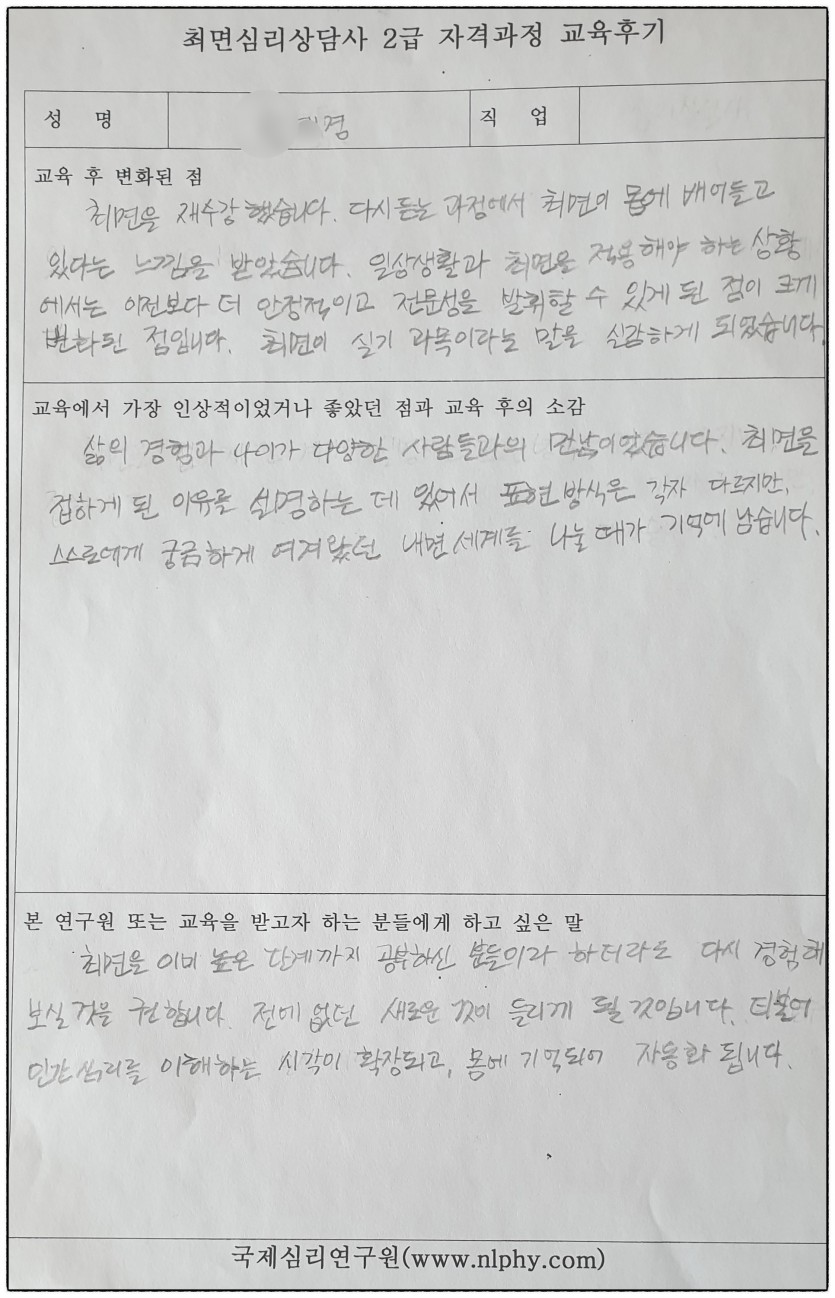 최면심리상담사 2급 자격과정 교육후기
성 명 경 직 업
교육 후 변화된 점
최면을 재수강 했습니다. 다시듣는 과정에서 최면이 몸에 배어들고
있다는 느낌을 받았습니다. 일상생활과 최면을 적용해야 하는 상황
에서는 이전보다 더 안정적이고 전문성을 발휘할 수 있게 된 점이 크게
변화된 점입니다. 최면이 실기 과목이라는 말을 실감하게 되었습니다.
교육에서 가장 인상적이었거나 좋았던 점과 교육 후의 소감
삶의 경험과 나이가 다양한 사람들과의 만남이었습니다. 최면을
접하게 된 이유를 설명하는 데 있어서 표현방식은 각자 다르지만,
스스로에게 궁금하게 여겨왔던 내면세계를 나눌 때가 기억에 남습니다.
본 연구원 또는 교육을 받고자 하는 분들에게 하고 싶은 말
최면을 이미 높은 단계까지 공부하신 분들이라 하더라도 다시 경험해
보실 것을 권합니다. 전에 없던 새로운 것이 들리게 될 것입니다. 더불어
인간심리를 이해하는 시각이 확장되고, 몸에 기억되어 자동화 됩니다.
국제심리연구원(www.nlphy.com)